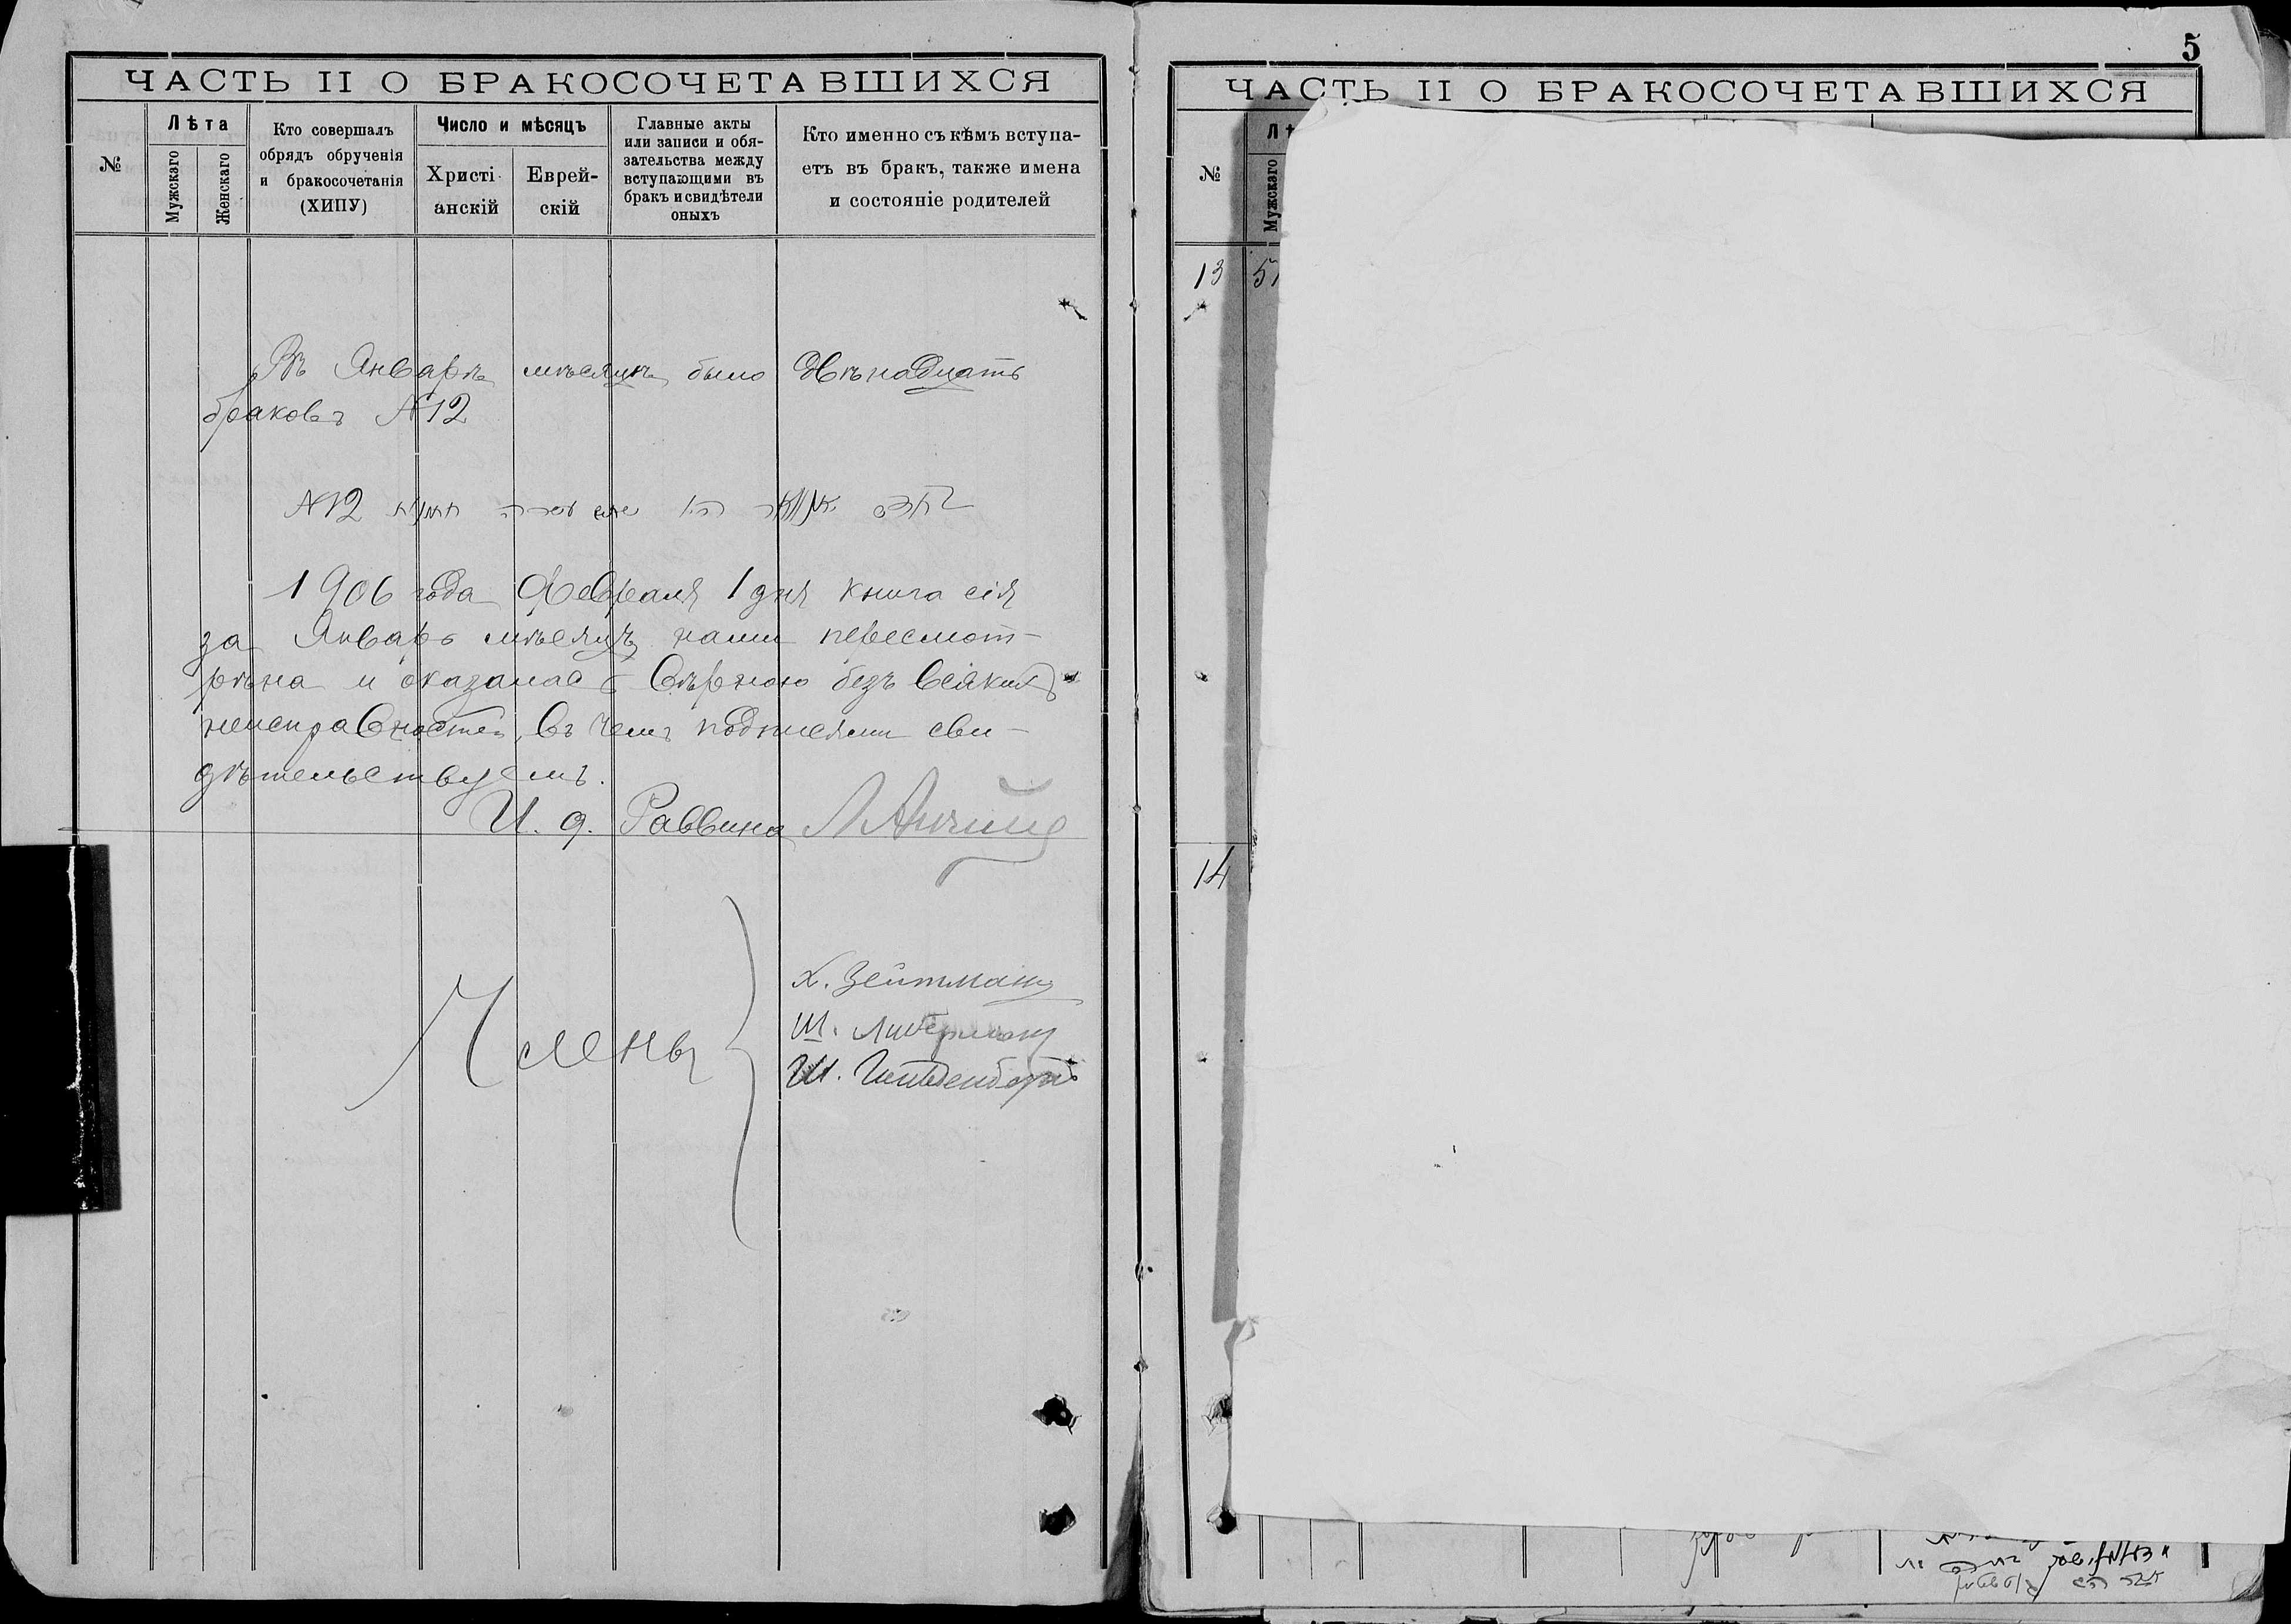 ЧАСТЬ II О БРАКОСОЧЕТАВШИХСЯ
№
Лѣта
Мужскаго
Женскаго
Кто совершалъ
обрядъ обрученія
и бракосочетанія
(ХИПУ)
Число и мѣсяцъ
Христі-
анскій
Еврей-
скій
Главные акты
или записи и обя-
зательства между
вступающими въ
бракъ и свидѣтели
оныхъ
Кто именно съ кѣмъ вступа-
етъ въ бракъ, также имена
и состояніе родителей
Въ Январѣ мѣсяцѣ было двѣнадцать
браковъ №12
№12
1906 года Февраля 1 дня книга сія
за Январь мѣсяцъ нами пересмот-
рѣна и оказалась вѣрною безъ всякихъ
неисправностей, въ чемъ подписями сви-
дѣтельствуемъ.
И. д. Раввина
Члены
Х. Зейтманъ
Ш. Либерманъ
Ш.
5
ЧАСТЬ II О БРАКОСОЧЕТАВШИХСЯ
№
Мужскаго
13
14